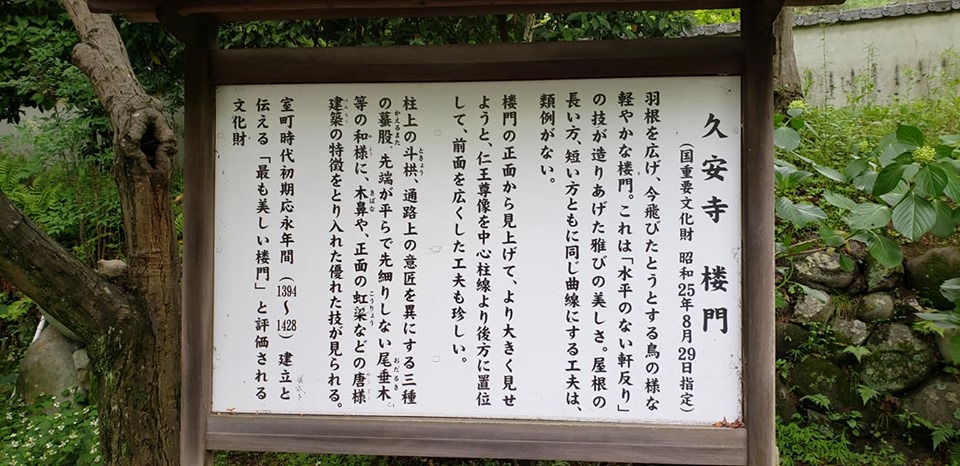 久安寺 楼門
(国重要文化財 昭和25年8月29日指定)
羽根を広げ、今飛びたとうとする鳥の様な
軽やかな楼門。これは「水平のない軒反り」
の技が造りあげた雅びの美しさ。屋根の
長い方、短い方ともに同じ曲線にする工夫は、
類例がな。
楼門の正面から見上げて、より大きく見せ
ようと、仁王尊像を中心柱線より後方に置位
して、前面を広くした工夫も珍しい。
柱上の斗栱、通路上の意匠を異にする三種
の蟇股、先端が平らで先細りしない尾垂木、
等の和様に、木鼻や、正面の虹梁などの唐様
建築の特徴をとり入れた優れた技が見られる。
室町時代初期応永年間(1394〜1428)建立と
伝える「最も美しい楼門」と評価される
文化財